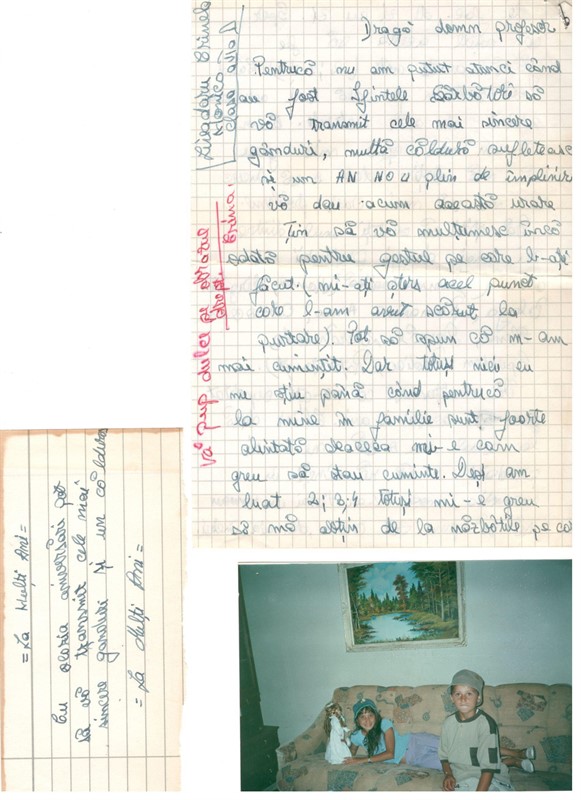 Dragă domn profesor
Pentrucă nu am putut atunci când
au fost Sfintele Sărbători să
vă transmit cele mai sincere
gânduri, multă căldură sufleteasc
și un AN NOU plin de împliniri
vă dau acum această urare
Țin să vă mulțumesc încă
odată pentru gestul pe care l-ați
făcut. (mi-ați șters acel punct
care l-am avut scăzut la
purtare). Pot să spun că m-am
mai cumințit. Dar totuși nici eu
nu știu până când pentrucă
la mine în familie sunt foarte
alintată deaceea mi-e cam
greu să stau cuminte. Deși am
luat 2; 3; 4 totuși mi-e greu
să mă abțin de la năzbâtiile pe ca
Monica
clasa a VII-a
Vă pup dulce pe obrazul
drept. Irina.
= La Mulți Ani! =
Cu ocazia aniversări
să vă transmit cele mai
sincere ganduri și un călduros
= La Mulți Ani =